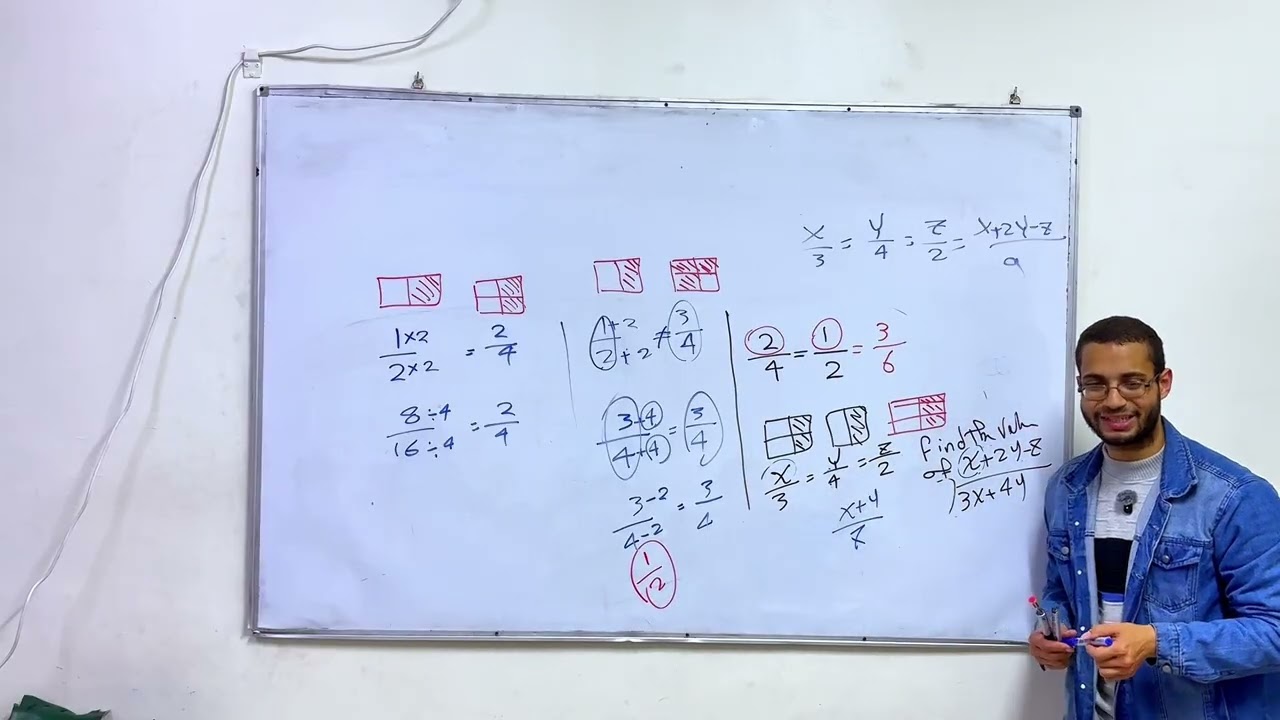 x/3 = y/4 = z/2 = x+2y-z/9
1×2/2×2 = 2/4
8÷4/16÷4 = 2/4
1+2/2+2 ≠ 3/4
3+4/4+4 = 3/4
3-2/4-2 = 3/4
1/2
2/4 = 1/2 = 3/6
x/3 = y/4 = z/2
find the value
of x+2y-z/3x+4y